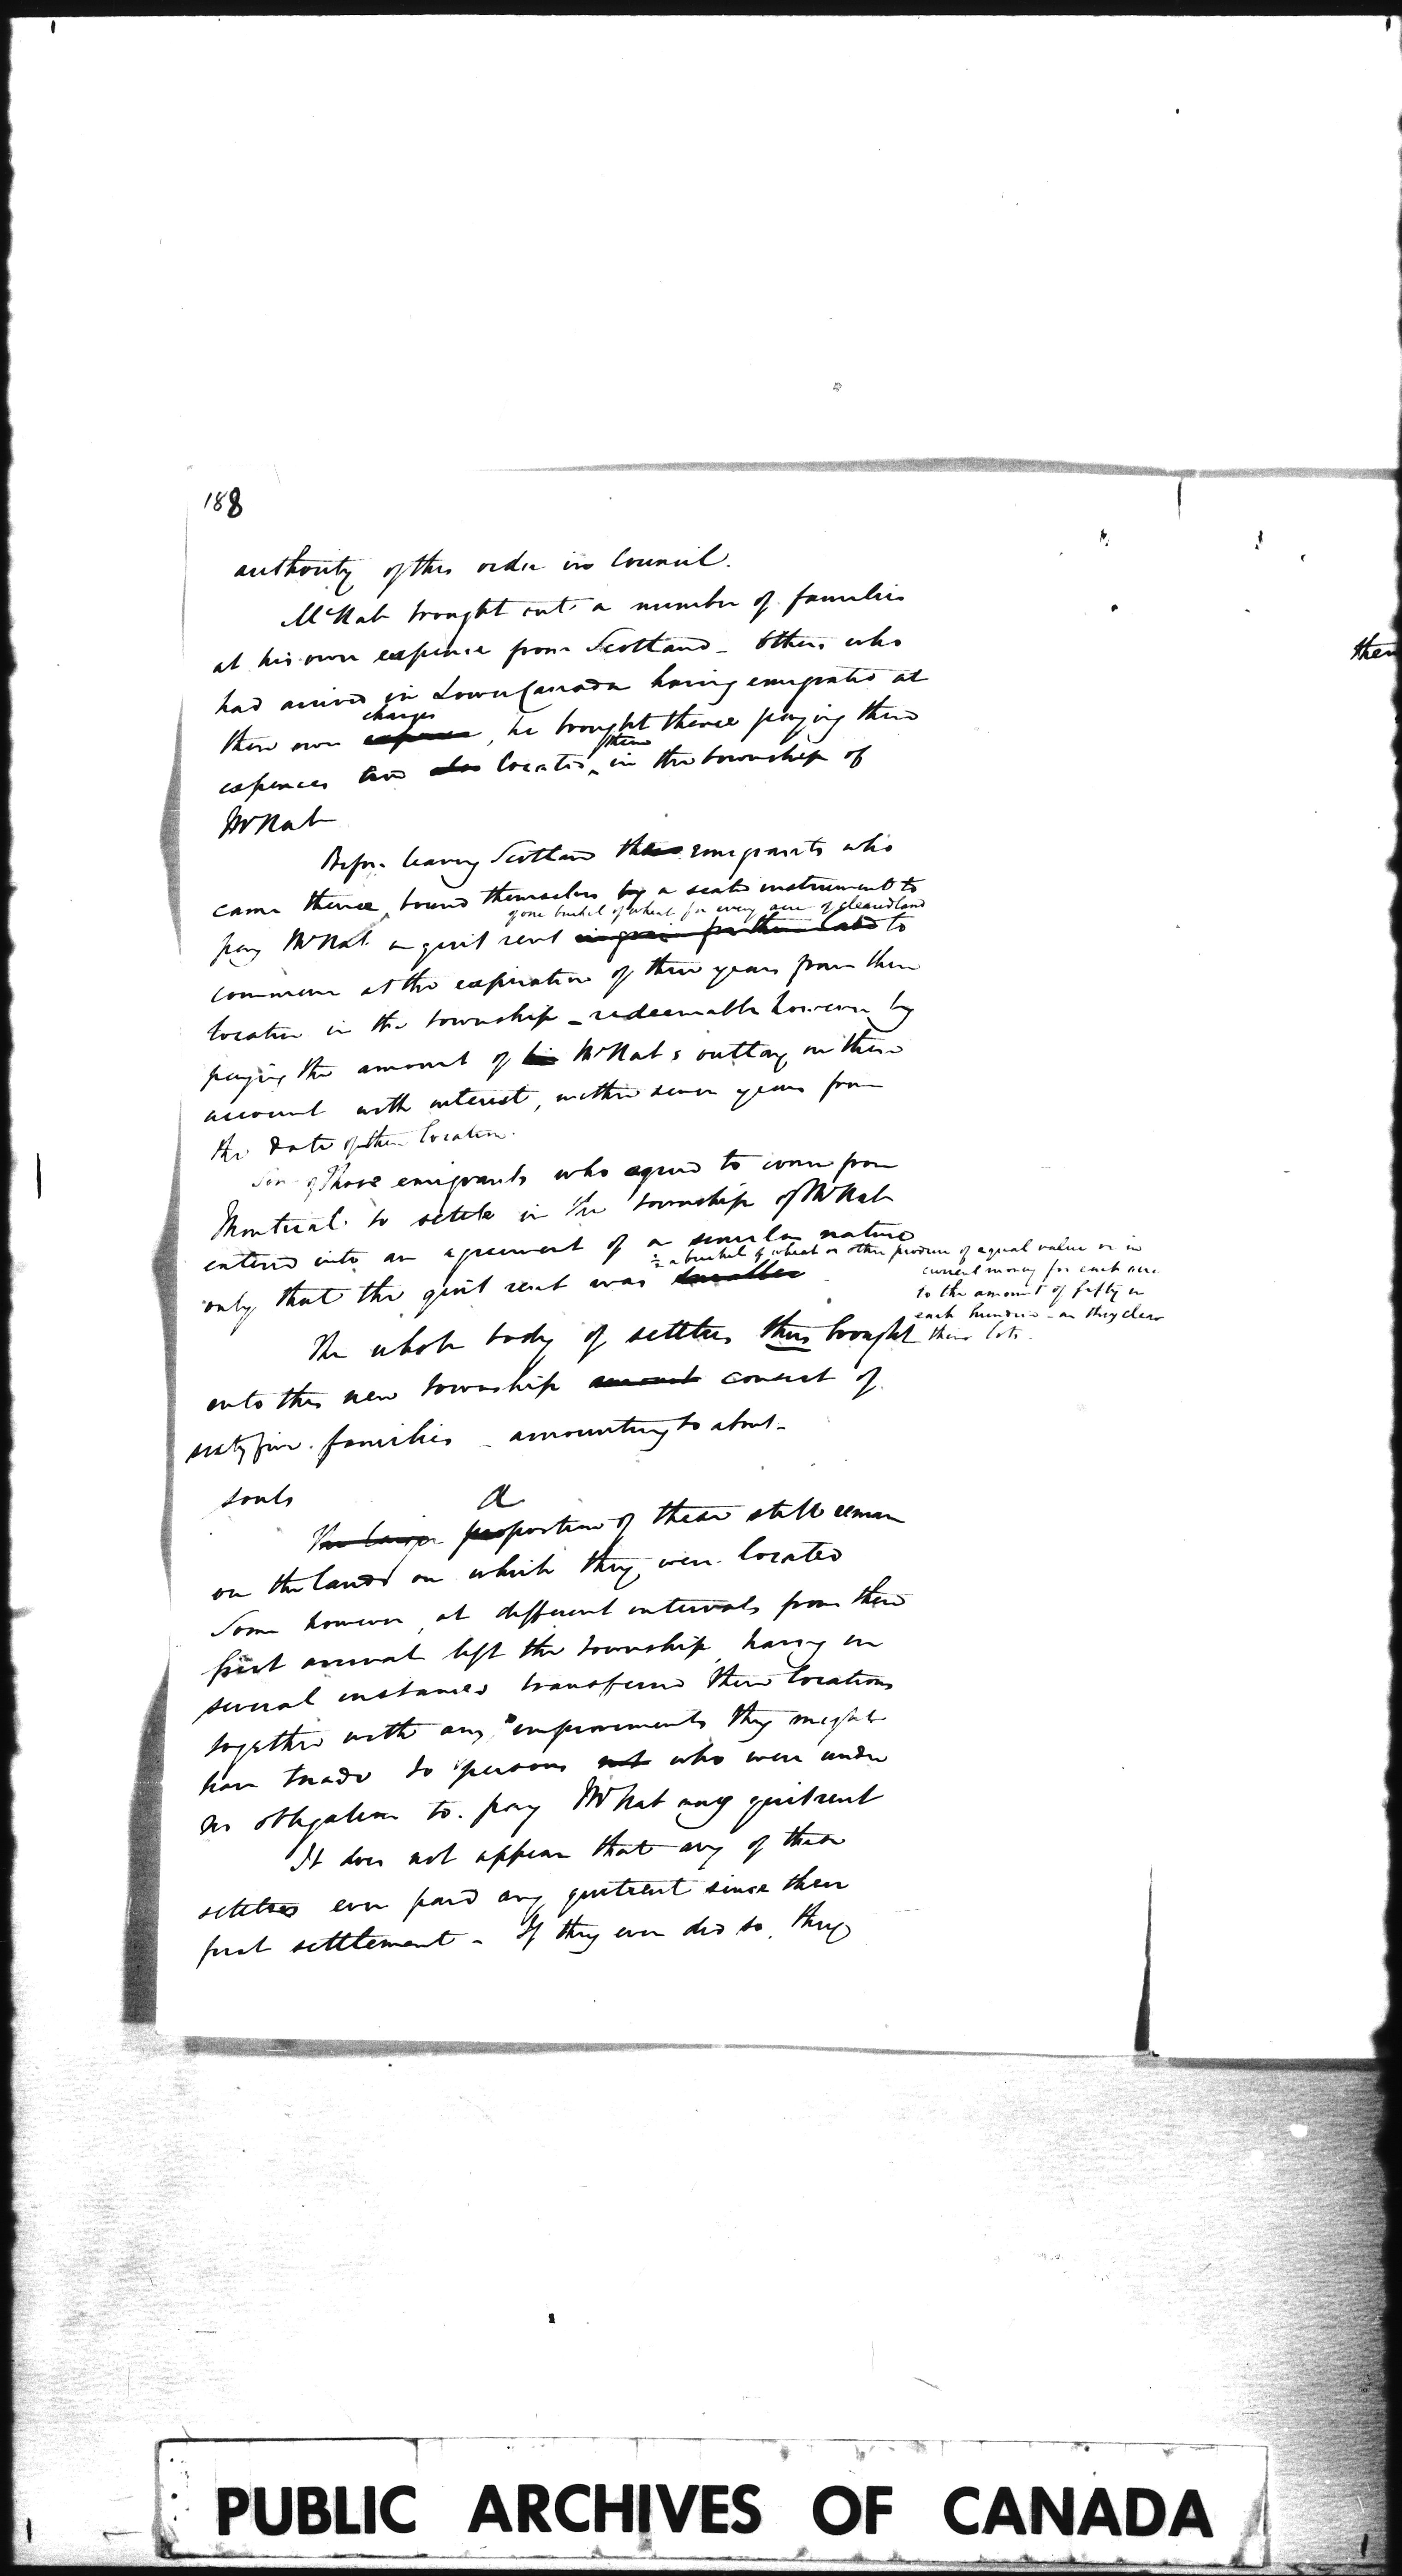 188
authority of this order in Council.
McNab brought out a number of families
at his own expense from Scotland - Others who
had arrived in Lower Canada having emigrated at
charges
their own expense, he brought thence paying their
them
expences and also located in the township of
McNab
Before leaving Scotland these emigrants who
came thence, bound themselves by a sealed instrument to
of one bushel of wheat for every acre of cleared land
pay McNab a quit rent in grain for their land to
commence at the expiration of three years from their
location in the township - redeemable however by
paying the amount of his McNab's outlay on their
account with interest, within seven years from
the date of their location.
Some of those emigrants who agreed to come from
Montreal to settle in the township of McNab
entered into an agreement of a similar nature
½ a bushel of wheat or other produce of equal value or in
only that the quit rent was smaller
current money for each acre
to the amount of fifty in
each hundred - as they clear
their lots.
The whole body of settlers thus brought
into this new township amount consist of
sixty five families - amounting to about -
souls
A
The larger proportion of these still remain
on the lands on which they were located
Some however, at different intervals from their
first arrival left the township, having in
several instances transferred their locations
together with any improvements they might
have made to persons not who were under
no obligation to pay McNab any quitrent
It does not appear that any of these
settlers ever paid any quitrent since their
first settlement - If they ever did so, they
then
PUBLIC ARCHIVES OF CANADA